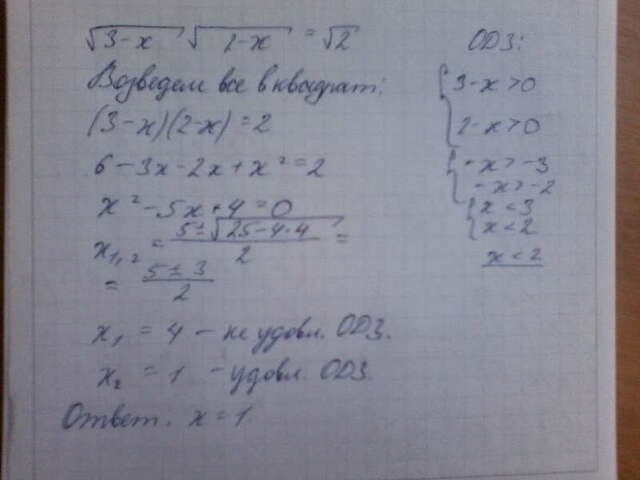 √3-x √2-x = √2
Возведем все в квадрат:
(3-x)(2-x)=2
6-3x-2x+x²=2
x²-5x+4=0
x₁,₂ = (5±√25-4·4)/2 =
= (5±3)/2
x₁ = 4 – не удовл. ОДЗ.
x₂ = 1 – удовл. ОДЗ.
Ответ. x=1
ОДЗ:
{3-x>0
2-x>0
{-x>-3
-x>-2
{x<3
x<2
x<2